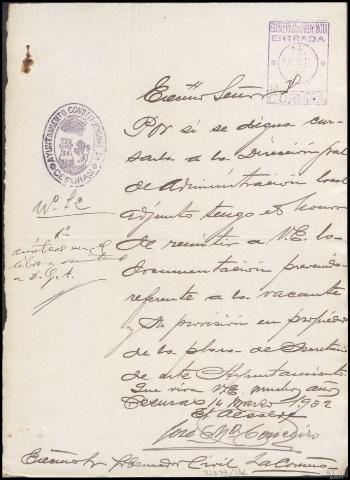 ENTRADA
15
MAR
CORUÑA
AYUNTAMIENTO CONSTITUCIONAL DE CESURAS
Excmo Señor
Por si se digna cur-
sarla a la Dirección gral
de Administración local
adjunto tengo el honor
de remitir a V.E. la
documentación prevenida
referente a la vacante
y su provisión en propiedad
de la plaza de Secretario
de este Ayuntamiento.
Que viva V.E. muchos años
Cesuras 14 Marzo 1932
El Alcalde
José Mª
Excmo Sr Gobernador Civil La Coruña
Nº 72
1º
libro y
a D.G.A.